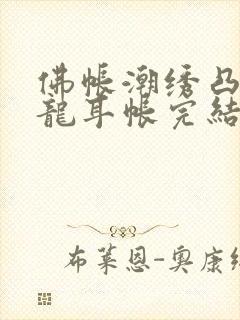 佛帐潮绣凸
龍耳帐完结
布莱恩-奥康纳